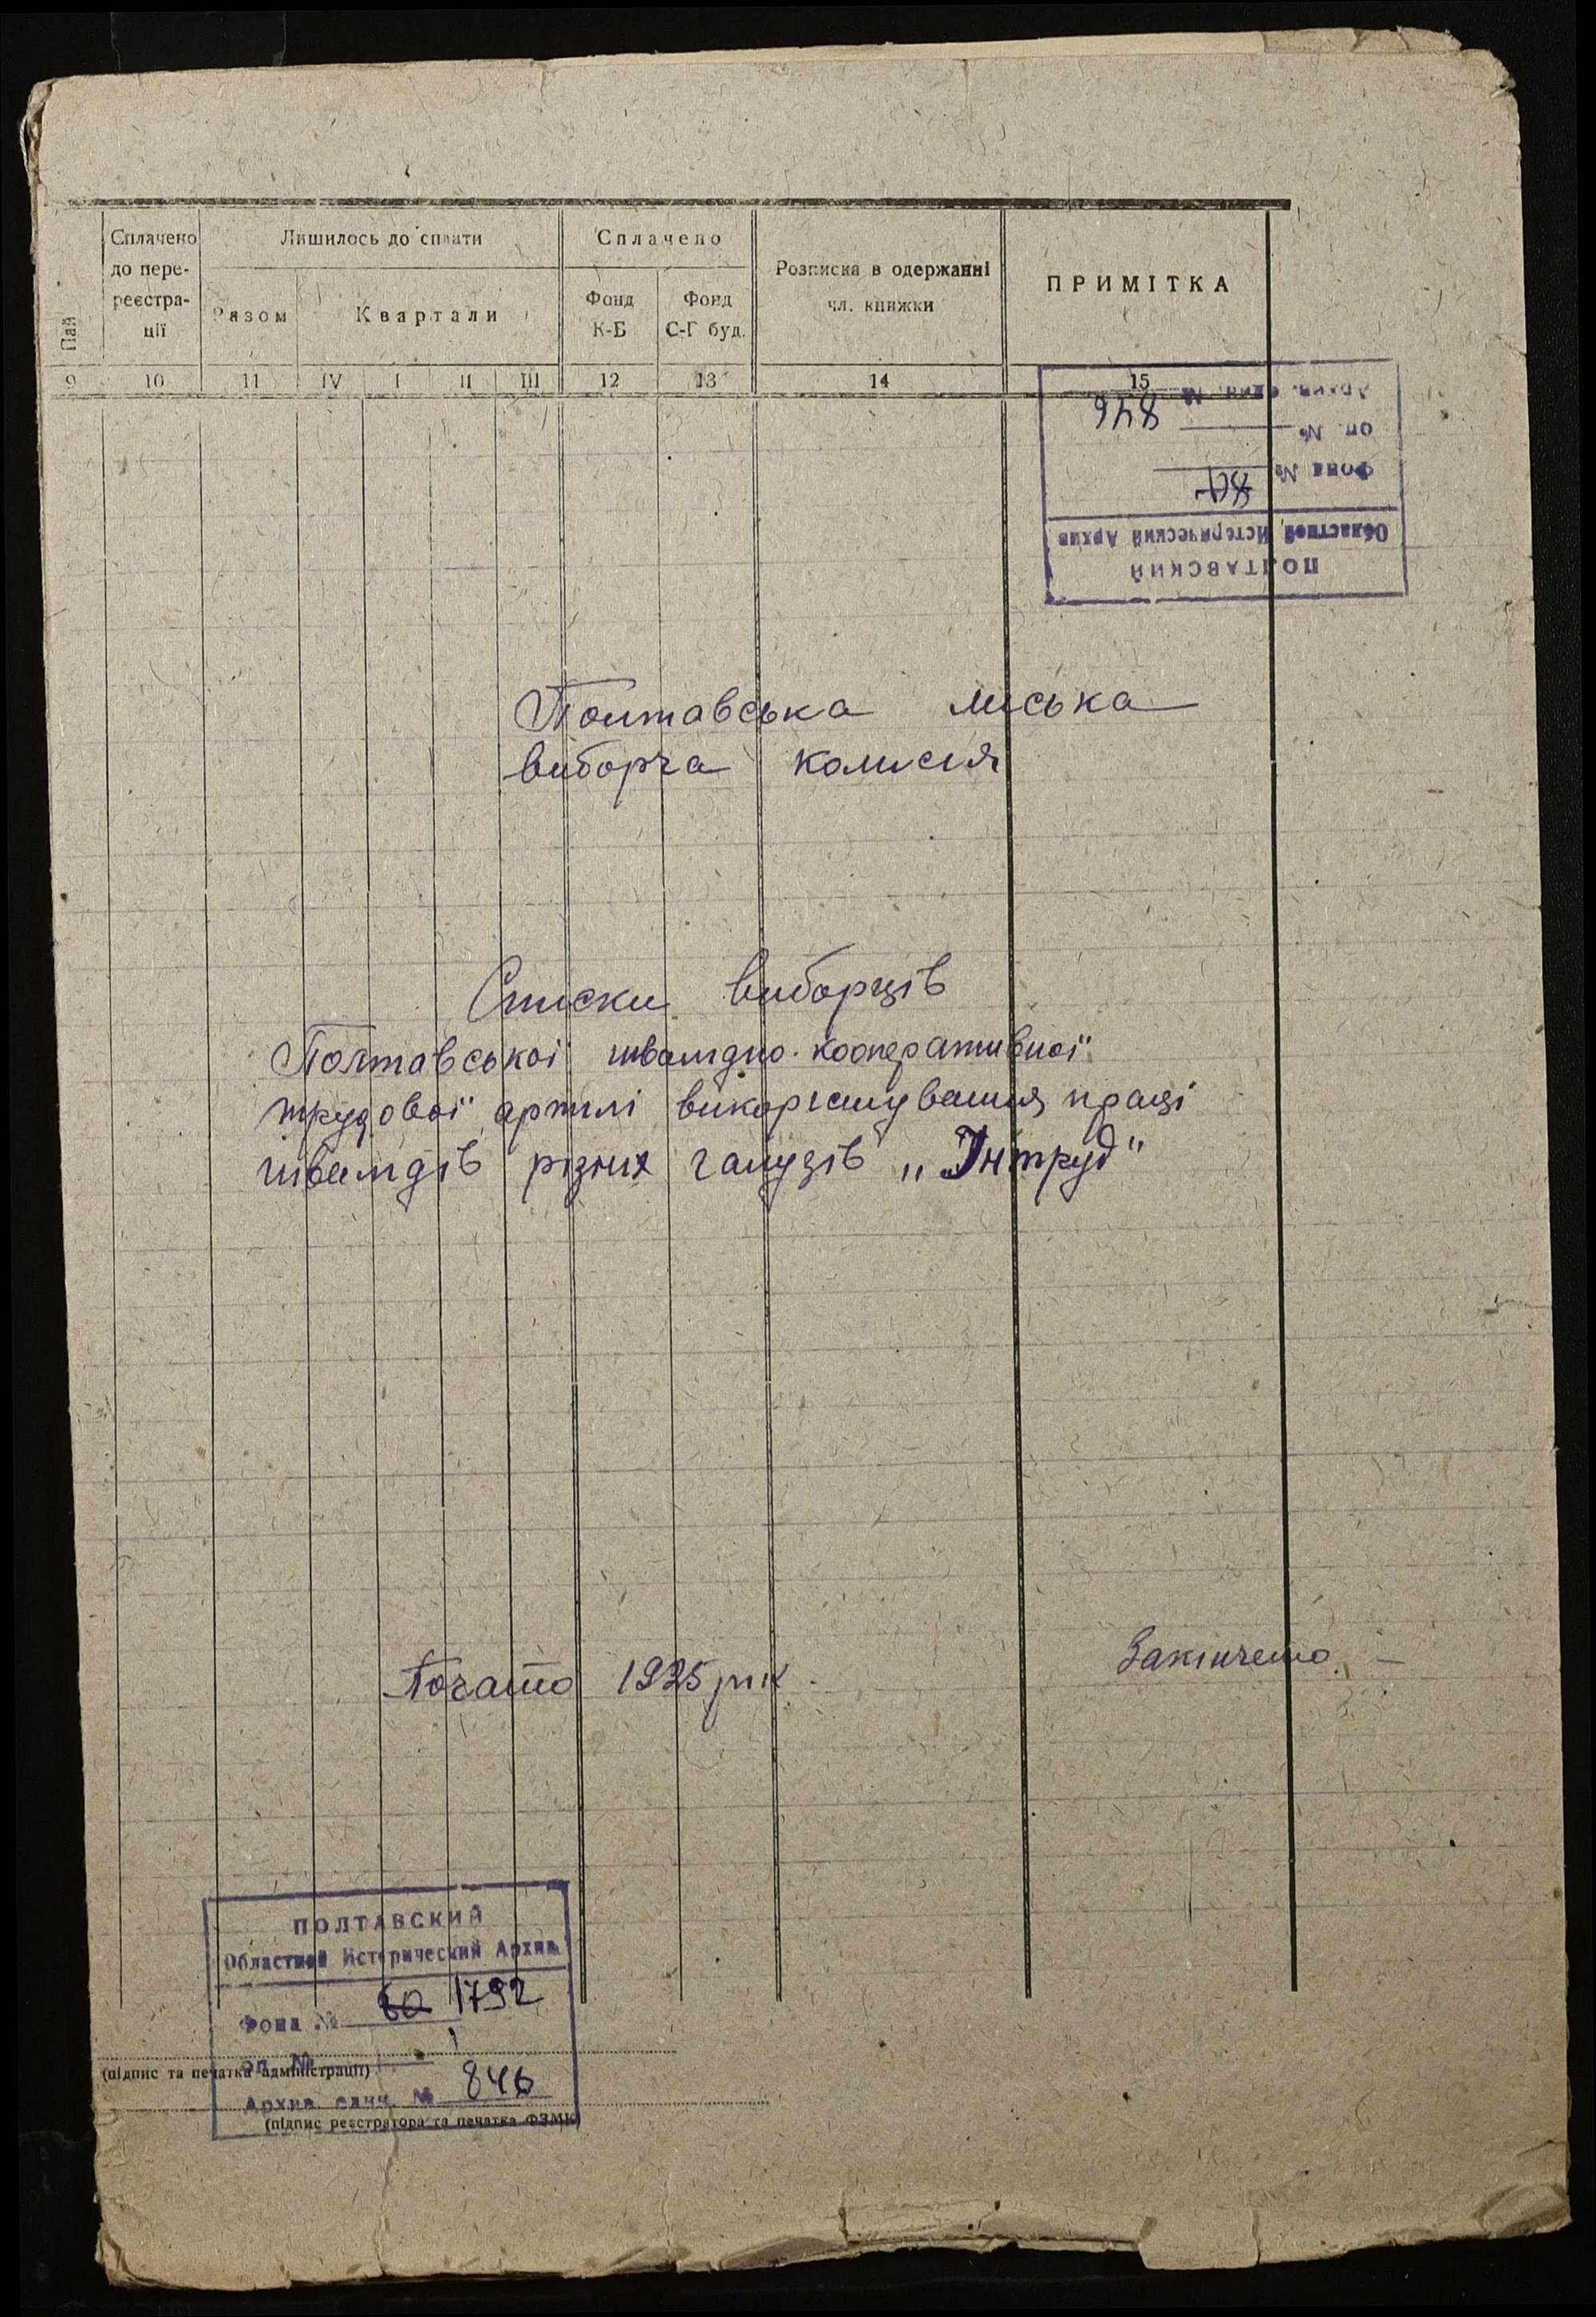 Пай
Сплачено
до пере-
реєстра-
ції
Лишилось до сплати
Разом
Квартали
Сплачено
Фонд
К-Б
Фонд
С-Г буд.
Розписка в одержанні
чл. книжки
ПРИМІТКА
9 10 11 IV I II III 12 13 14 15
ПОЛТАВСКИЙ
Областной Исторический Архив
Фонд № 60
оп. №
Архив. един. № 846
Полтавська міська
виборча комісія
Списки виборців
Полтавської інвалідно-кооперативної
трудової артілі використування праці
інвалідів різних галузів „Інтруд"
Почато 1935 рік
Закінчено –
ПОЛТАВСКИЙ
Областной Исторический Архив
Фонд № 60 1792
оп. № 1
(підпис та печатка адміністрації)
Архив. един. № 846
(підпис реєстратора та печатка ФЗМК)